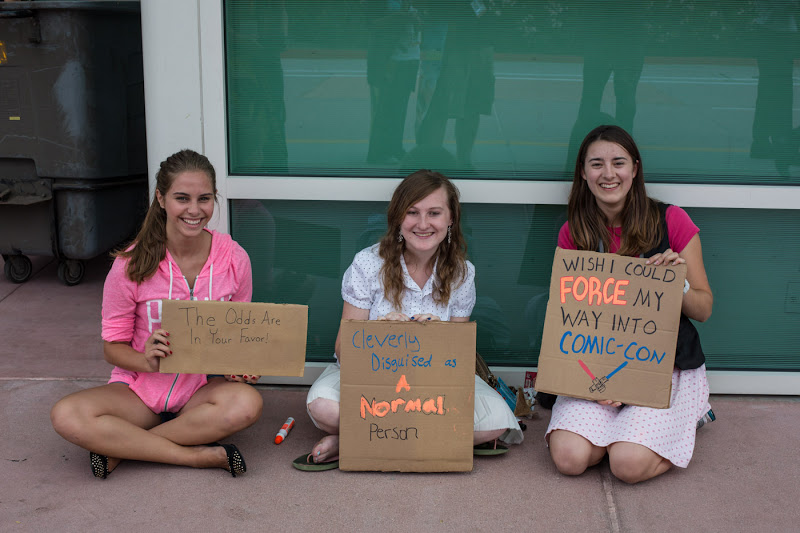 The Odds Are
In Your Favor!
Cleverly
Disguised as
A
Normal
Person
WISH I COULD
FORCE MY
WAY INTO
COMIC-CON